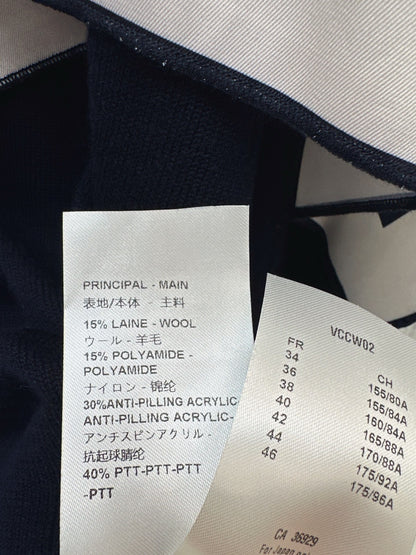 PRINCIPAL - MAIN
表地/本体 - 主料
15% LAINE - WOOL
ウール - 羊毛
15% POLYAMIDE -
POLYAMIDE
ナイロン - 锦纶
30%ANTI-PILLING ACRYLIC
ANTI-PILLING ACRYLIC-
アンチスピンアクリル -
抗起球腈纶
40% PTT-PTT-PTT
-PTT
VCCW02
FR CH
34 155/80A
36 155/84A
38 160/84A
40 165/88A
42 170/88A
44 175/92A
46 175/96A
CA 36929
For Japan